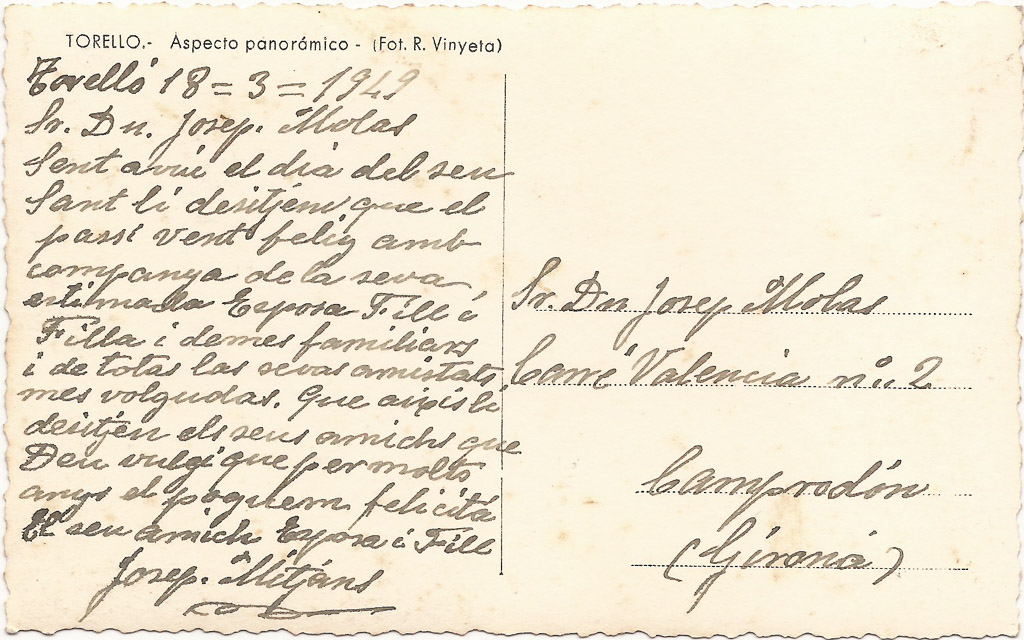 TORELLO.- Aspecto panorámico - (Fot. R. Vinyeta)
Torelló 18=3=1949
Sr. Dn. Josep. Molas
Sent avui el dia del seu
Sant li desitjem que el
passi vent felig amb
companya de la seva
estimada Esposa Fill i
Filla i demes familiars
i de totas las sevas amistats
mes volgudas. Que aixis li
desitjen els seus amichs que
Deu vulgi que per molts
anys el poguem felicitá
El seu amich Esposa i Fill
Josep. Mitjans
Sr. Dn Josep Molas
Carré Valencia nº. 2
Camprodón
(Girona)